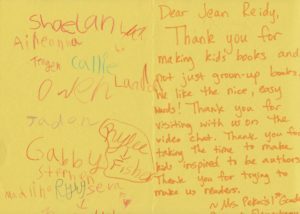 Shaelan
Teagen
Callie
Owen
Landon
Jaden
Rylee
Fisher
Gabby
Dear Jean Reidy,
Thank you for
making kids' books and
not just grown-up books.
We like the nice, easy
words! Thank you for
visiting with us on the
video chat. Thank you for
taking the time to make
kids inspired to be authors.
Thank you for trying to
make us readers.
~ Ms. 1st Grade